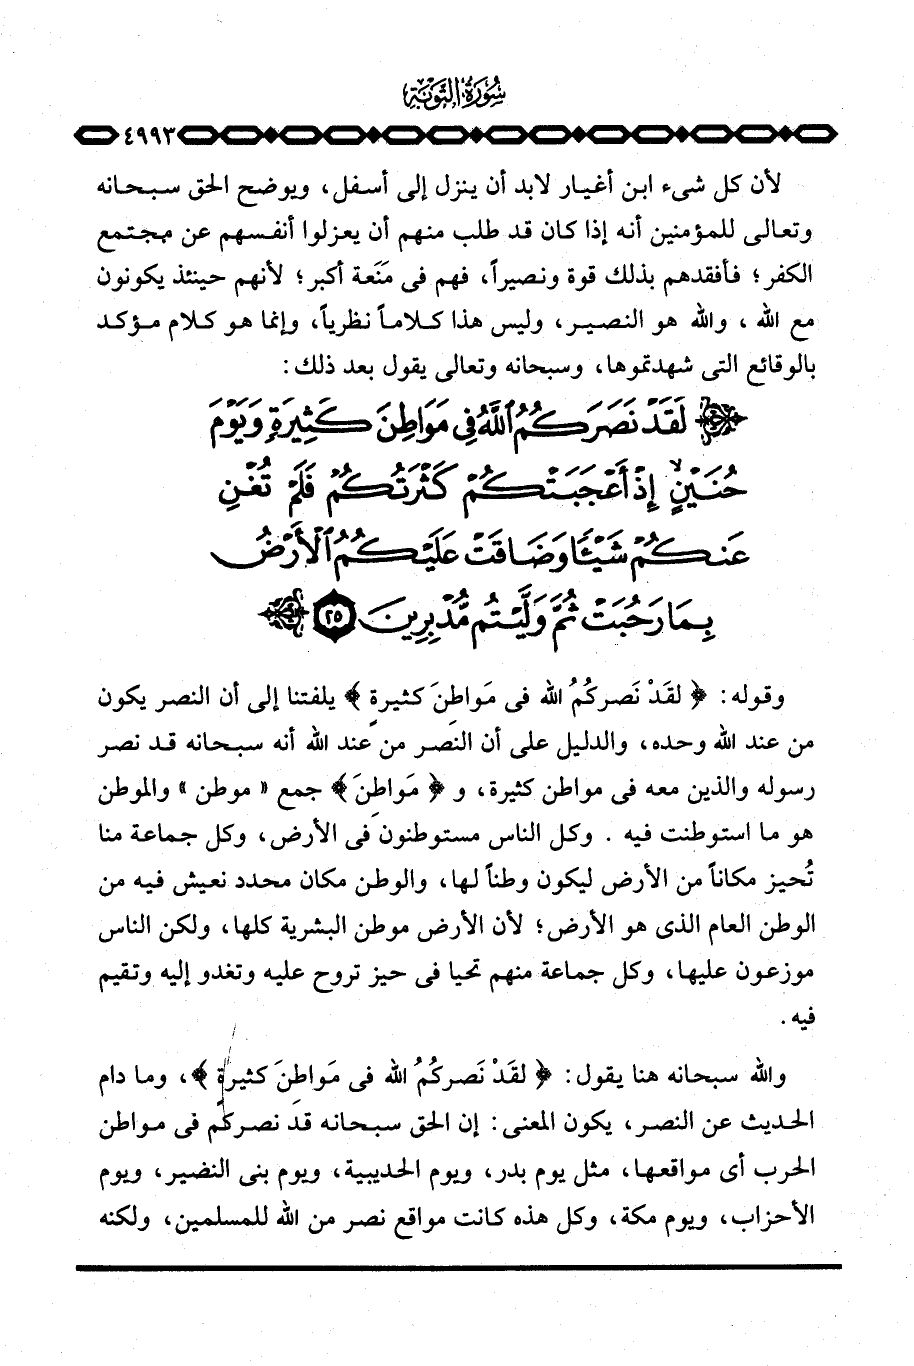 سُورَةُ التَّوْبَةِ
٤٩٩٣
لأن كل شىء ابن أغيار لابد أن ينزل إلى أسفل، ويوضح الحق سبحانه
وتعالى للمؤمنين أنه إذا كان قد طلب منهم أن يعزلوا أنفسهم عن مجتمع
الكفر؛ فأفقدهم بذلك قوة ونصيراً، فهم فى مَنَعة أكبر؛ لأنهم حينئذ يكونون
مع الله ، والله هو النصير، وليس هذا كلاماً نظرياً، وإنما هو كلام مؤكد
بالوقائع التى شهدتموها، وسبحانه وتعالى يقول بعد ذلك:
لَقَدْ نَصَرَكُمُ ٱللَّهُ فِى مَوَاطِنَ كَثِيرَةٍ وَيَوْمَ
حُنَيْنٍ إِذْ أَعْجَبَتْكُمْ كَثْرَتُكُمْ فَلَمْ تُغْنِ
عَنكُمْ شَيْئًا وَضَاقَتْ عَلَيْكُمُ ٱلْأَرْضُ
بِمَا رَحُبَتْ ثُمَّ وَلَّيْتُم مُّدْبِرِينَ ٢٥
وقوله: ﴿ لَقَدْ نَصَركُمُ الله فى مَواطِنَ كثيرةٍ ﴾ يلفتنا إلى أن النصر يكون
من عند الله وحده، والدليل على أن النصر من عند الله أنه سبحانه قد نصر
رسوله والذين معه فى مواطن كثيرة، و ﴿ مَواطِنَ ﴾ جمع « موطن » والموطن
هو ما استوطنت فيه . وكل الناس مستوطنون فى الأرض، وكل جماعة منا
تُحيز مكاناً من الأرض ليكون وطناً لها، والوطن مكان محدد نعيش فيه من
الوطن العام الذى هو الأرض؛ لأن الأرض موطن البشرية كلها، ولكن الناس
موزعون عليها، وكل جماعة منهم تحيا فى حيز تروح عليه وتغدو إليه وتقيم
فيه.
والله سبحانه هنا يقول: ﴿ لَقَدْ نَصركُمُ الله فى مَواطِنَ كثيرةٍ ﴾، وما دام
الحديث عن النصر، يكون المعنى: إن الحق سبحانه قد نصركم فى مواطن
الحرب أى مواقعها، مثل يوم بدر، ويوم الحديبية، ويوم بنى النضير، ويوم
الأحزاب، ويوم مكة، وكل هذه كانت مواقع نصر من الله للمسلمين، ولكنه